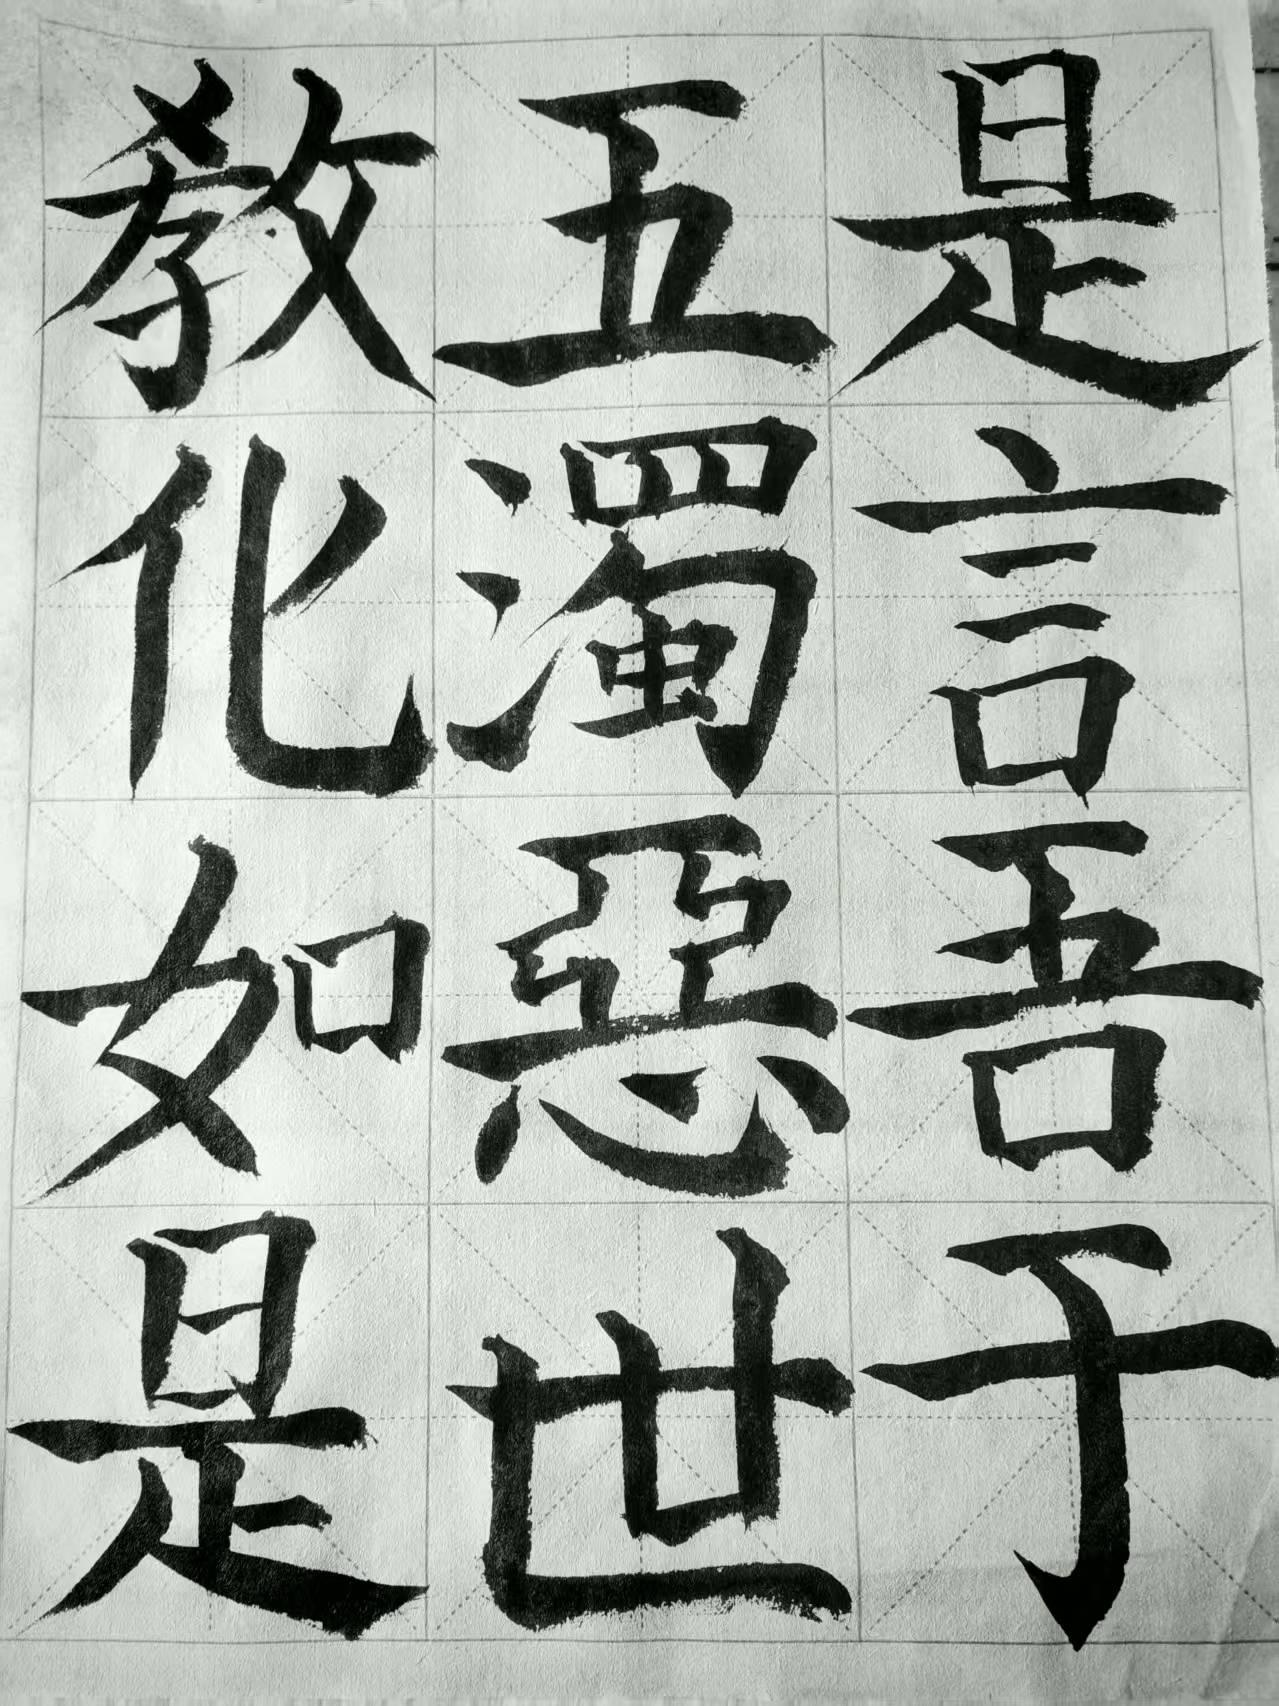 是言吾于
五濁惡世
教化如是